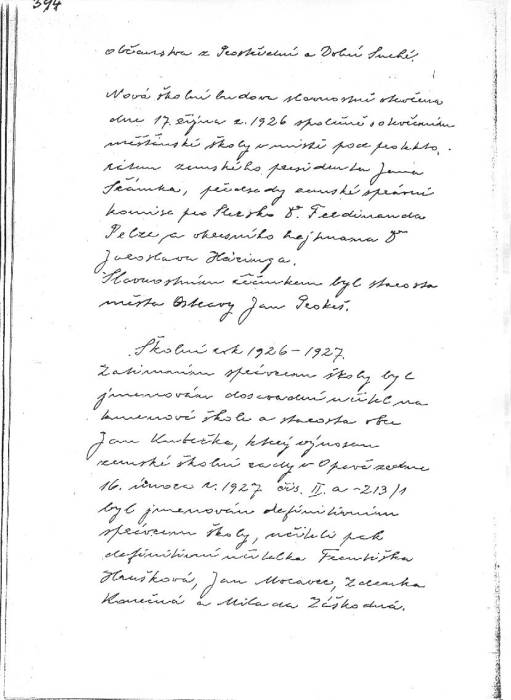 394
občanstva z Prostřední a Dolní Suché.
Nová školní budova slavnostně otevřena
dne 17. října r. 1926 společně s otevřením
měšťanské školy v místě pod protekto-
rátem zemského presidenta Jana
Šrámka, předsedy zemské správní
komise pro Slezsko Dr Ferdinanda
Pelze, a okresního hejtmana Dr
Jaroslava Háringa.
Slavnostním řečníkem byl starosta
města Ostravy Jan Prokeš.
Školní rok 1926-1927.
Zatímním správcem školy byl
jmenován dosavadní učitel na
kmenové škole a starosta obce
Jan Kubečka, který výnosem
zemské školní rady v Opavě ze dne
16. února r. 1927 čís. II a -213/1
byl jmenován definitivním
správcem školy, učiteli pak
definitivní učitelka Františka
Hrušková, Jan Moravec, Zdenka
Konečná a Milada Záškodná.